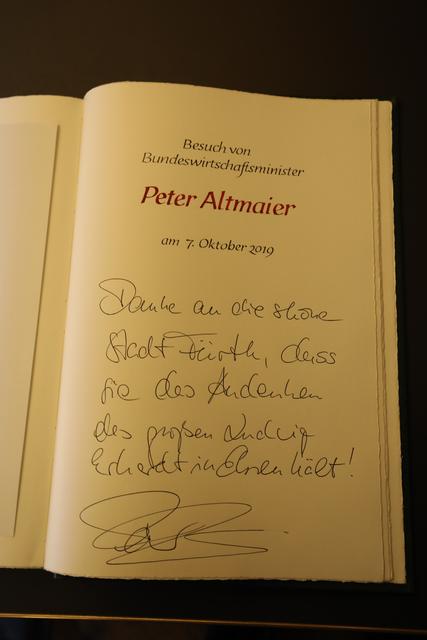 Besuch von
Bundeswirtschaftsminister
Peter Altmaier
am 7. Oktober 2019
Danke an die schöne
Stadt Fürth, dass
sie das Andenken
des großen Ludwig
Erhardt in Ehren hält!